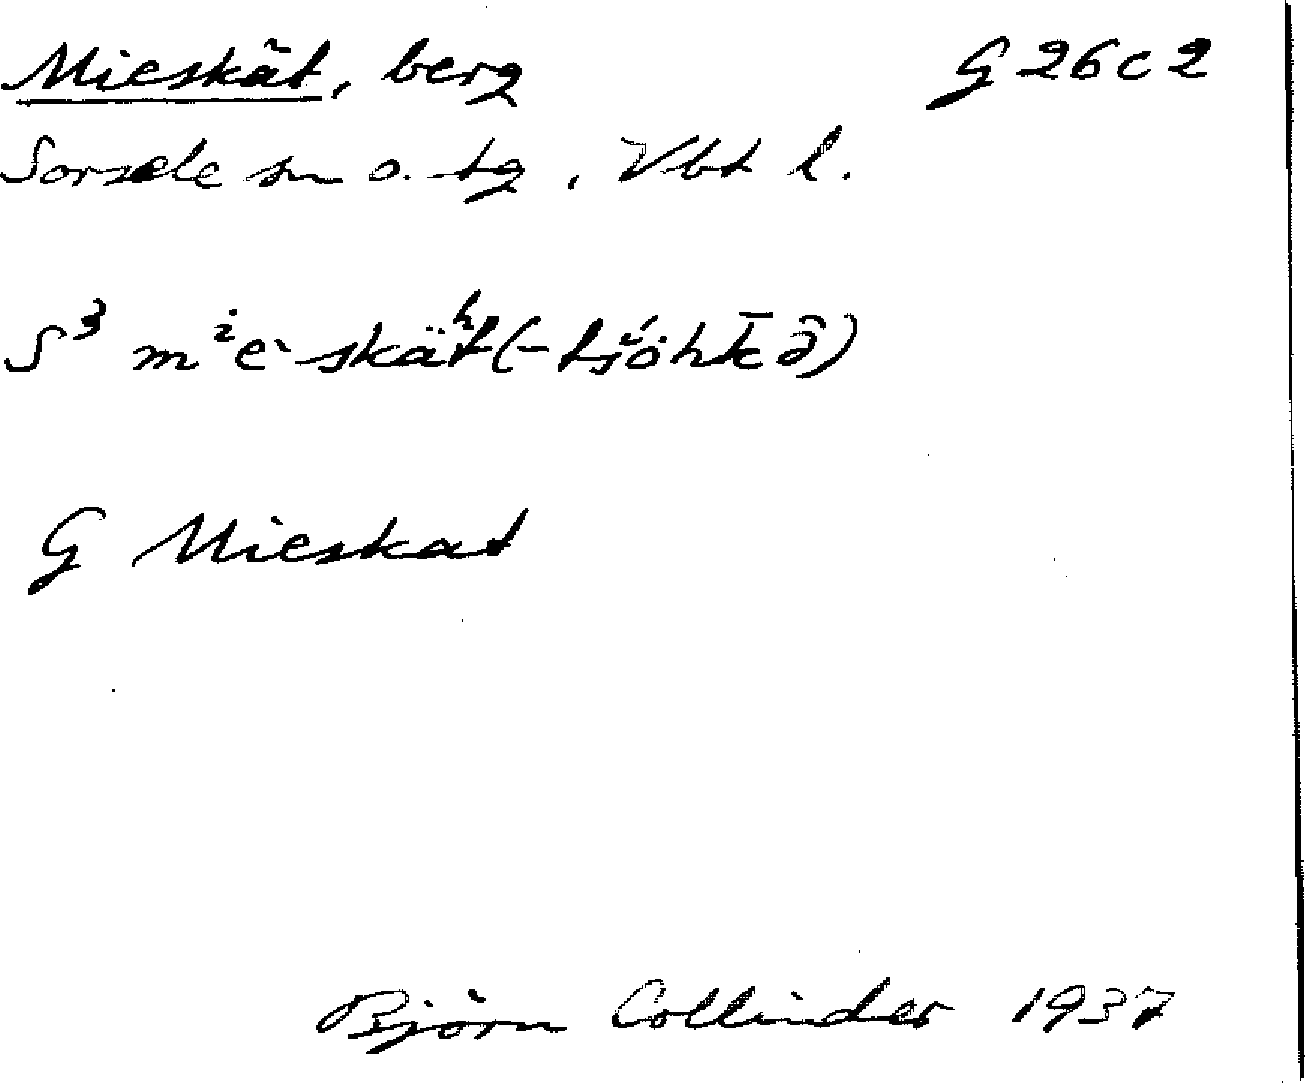 Mieskât, berg G 26 c 2
Sorsele sn o. tg, Vbt l.
S³ mⁱe·skäʰt (-tšŏ́htkə̑)
G Mieskat
Björn Collinder 1937